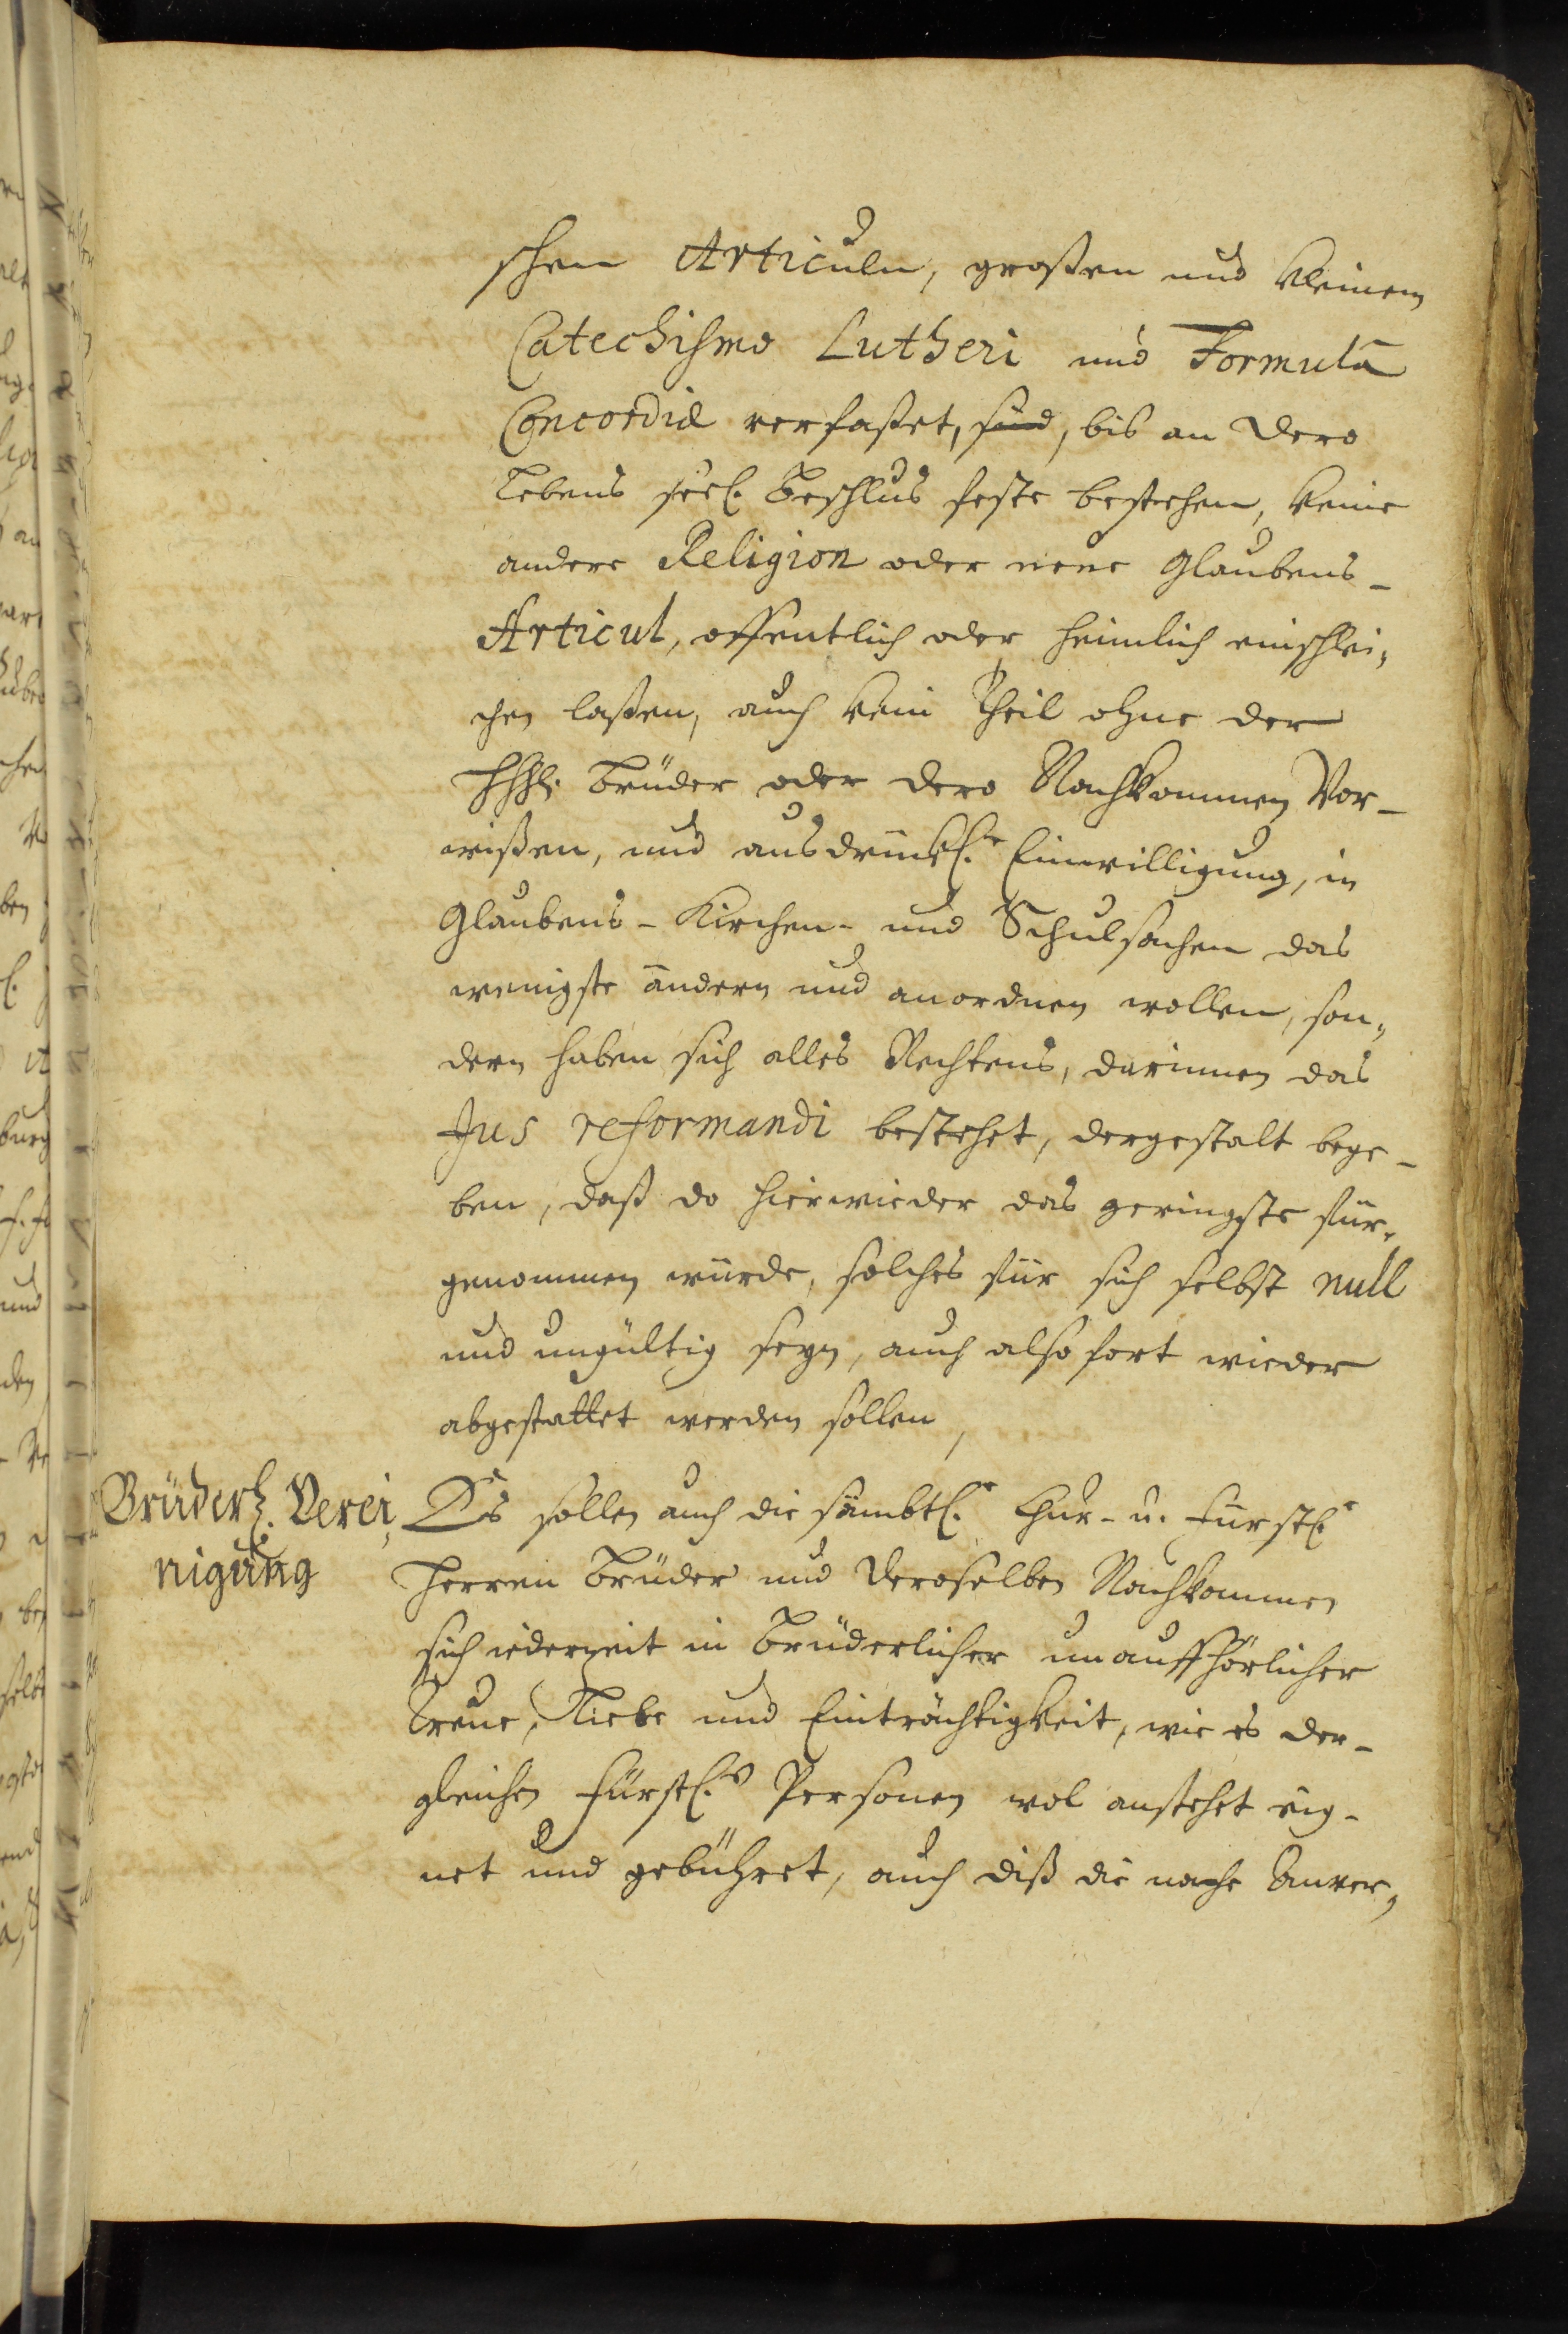 schen Articuln, großen und kleinem
Catechismo Lutheri und Formula
Concordiæ verfaßet, sind, bis an dero
Lebens seel. Beschlus feste bestehen, keine
andere Religion oder neue Glaubens-
Articul, offentlich oder heimlich einschlei,
chen laßen, auch kein Theil ohne der
HHh. Brüder oder dero Nachkommen Vor-
wißen, und ausdrückl.r Einwilligung, in
Glaubens- Kirchen- und Schulsachen das
wenigste ändern und anordnen wollen, son,
dern haben sich alles Rechtens, darinnen das
Jus reformandi bestehet, dergestalt bege-
ben, daß da hierwieder das geringste für,
genommen würde, solches für sich selbst null
und ungültig seyn, auch also fort wieder
abgestattet werden sollen,
Brüderl. Verei,
nigung
Es sollen auch die sämbtl.e Chur- u. Fürstl.e
Herren Brüder und deroselben Nachkommen
sich iederzeit in Brüderlicher unauffhörlicher
Treue, Liebe und Einträchtigkeit, wie es der-
gleichen Fürstl.n Personen wol anstehet eig-
net und gebühret, auch diß die nahe Anver,